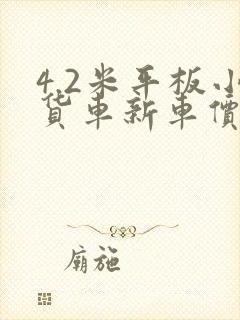 4.2米平板小
货车新车價
廟施